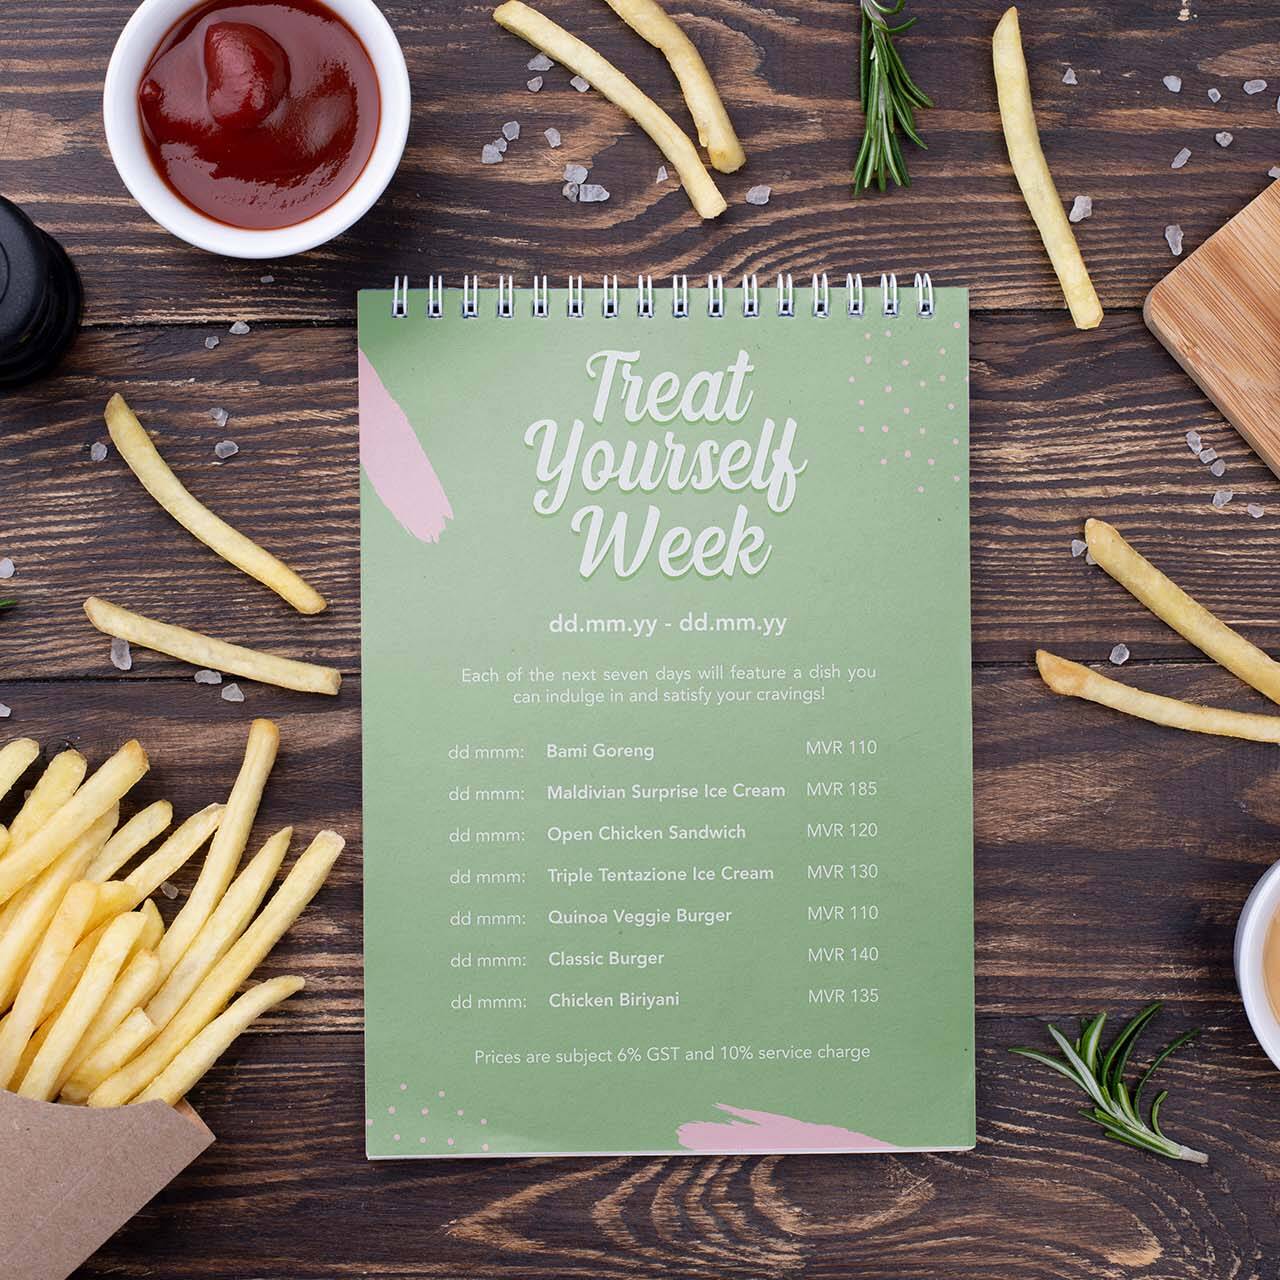 Treat
Yourself
Week
dd.mm.yy - dd.mm.yy
Each of the next seven days will feature a dish you
can indulge in and satisfy your cravings!
dd mmm: Bami Goreng MVR 110
dd mmm: Maldivian Surprise Ice Cream MVR 185
dd mmm: Open Chicken Sandwich MVR 120
dd mmm: Triple Tentazione Ice Cream MVR 130
dd mmm: Quinoa Veggie Burger MVR 110
dd mmm: Classic Burger MVR 140
dd mmm: Chicken Biriyani MVR 135
Prices are subject 6% GST and 10% service charge